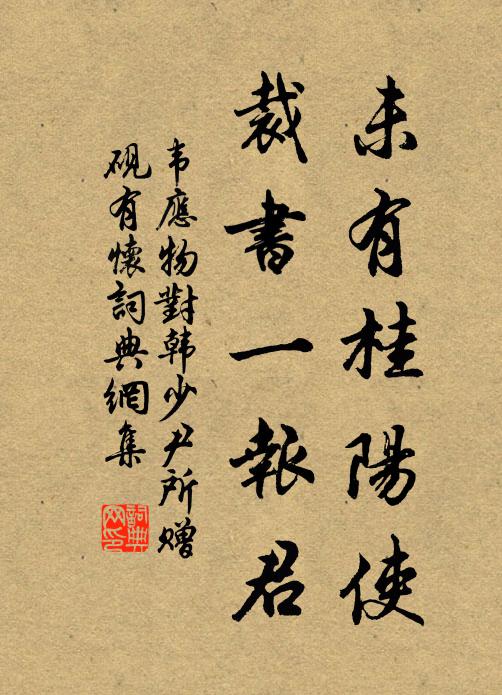 未有桂陽使
裁書一報君
韦應物對韩少尹所赠
硯有懷詞典網集
詞典
网印